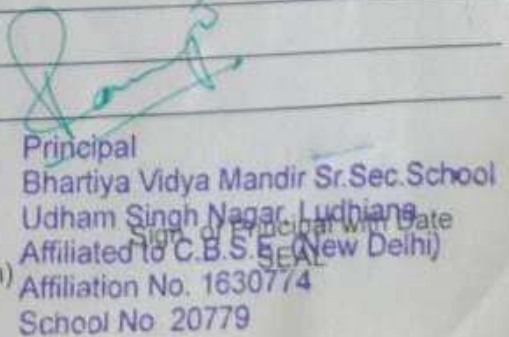 Principal
Bhartiya Vidya Mandir Sr.Sec.School
Udham Singh Nagar, Ludhiana
Sign. of Principal with Date
Affiliated to C.B.S.E. (New Delhi)
SEAL
Affiliation No. 1630774
School No 20779